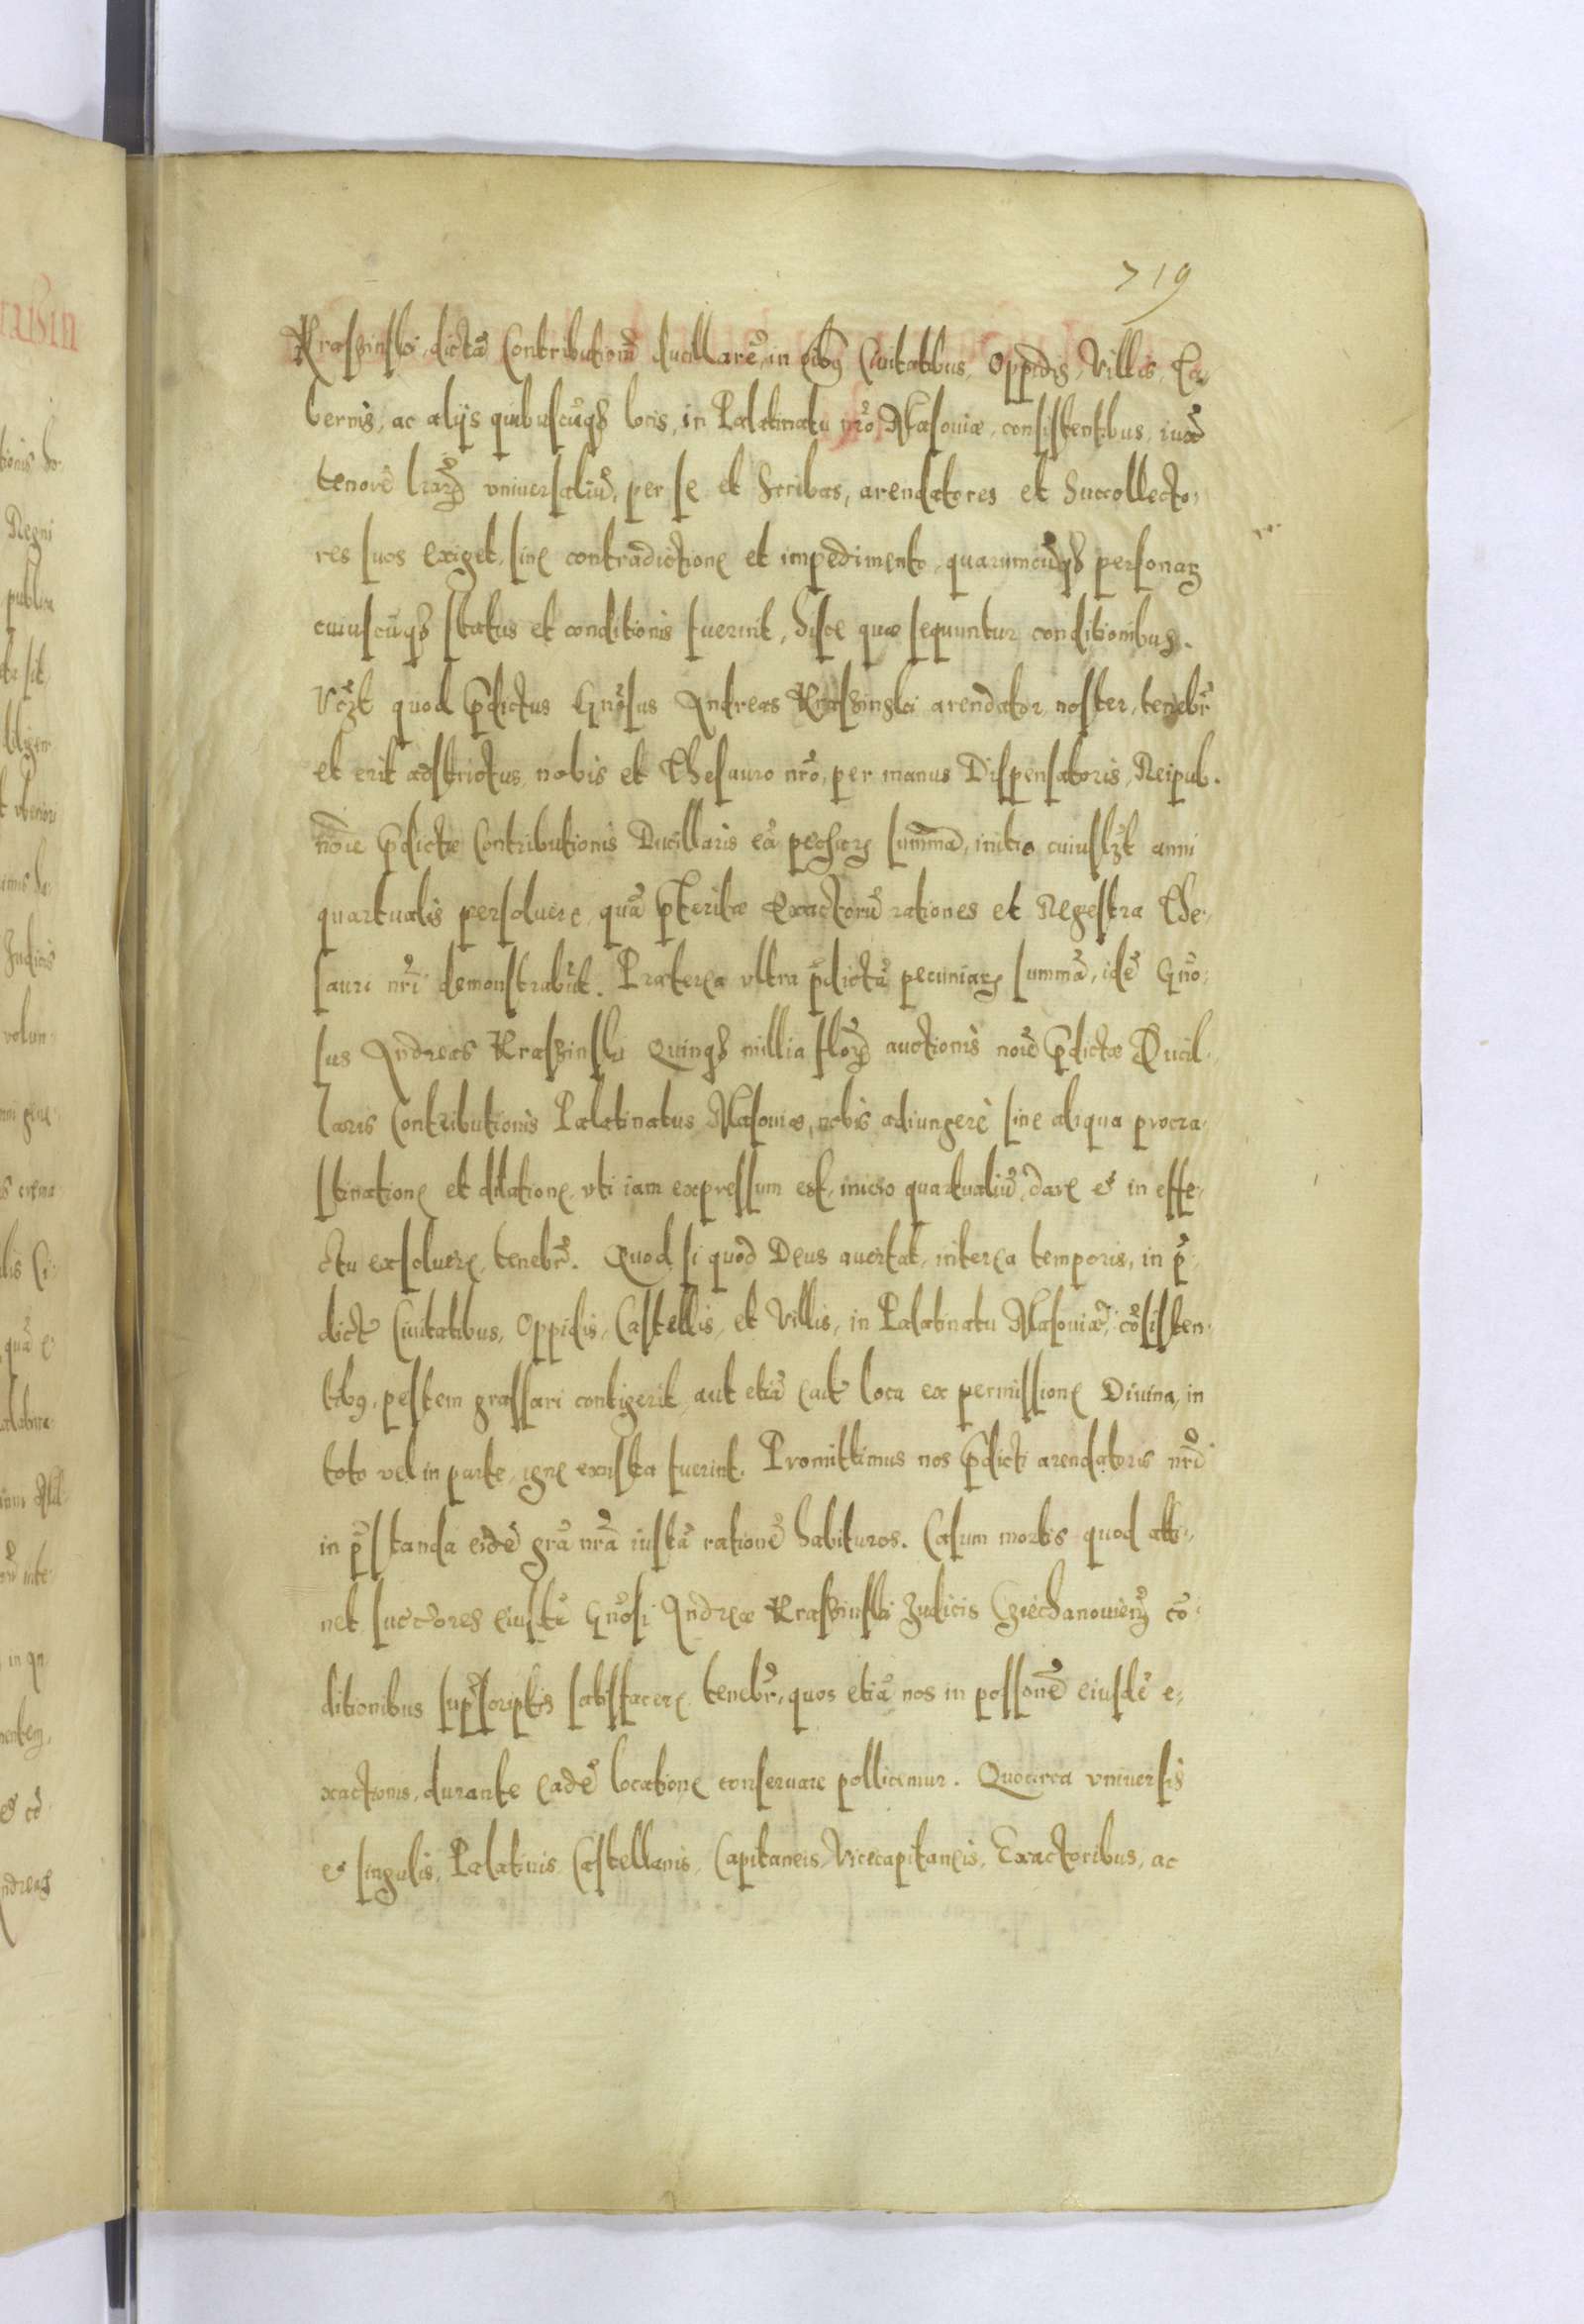 719
Kraszinski, dictã Contributionẽ ducillarẽ, in oĩbȝ Ciuitatibus, Oppidis, Villis, Ta-
bernis, ac alijs quibuscũqȝ locis, in Palatinatu nr̃o Masoviæ, consistentibus, iuxa
tenorẽ lr̃arũ vniversaliũ, per se et Scribas, arendatores et Succollecto-
res suos exiget, sine contradictione et impedimento, quarumcũqȝ personarȝ
cuiuscũqȝ status et conditionis fuerint, hisce quæ sequuntur conditionibus.
Vcȝt quod p̃dictus Gnõsus Andreas Kraszinski arendator noster, tenebr̃
et erit adstrictus nobis et Thesauro nr̃o, per manus Dispensatoris, Reipub.
nõie p̃dictæ Contributionis Ducillaris eã pechiarȝ summã, initio cuiuslȝt anni
quartualis persoluere, quã p̃teritæ Exactorũ rationes et Regestra The-
sauri nr̃i demonstrabũt. Præterea vltra p̃dictã pecuniarȝ summã, idẽ Gnõ-
sus Andreas Kraszinski Quinqȝ millia flõrȝ auctionis nõie p̃dictæ Ducil-
laris Contributionis Palatinatus Masoviæ, nobis adiungere sine aliqua procra-
stinatione et dilatione, vti iam expressum est, initio quartualiũ, dare et in effe-
ctu exsoluere, tenebr̃. Quod si quod Deus auertat, interea temporis, in p̃-
dict̃ Ciuitatibus, Oppidis, Castellis, et Villis, in Palatinatu Masoviæ, cõsisten-
tibȝ, pestem grassari contigerit, aut etiã ead̃ loca ex permissione Diuina, in
toto vel in parte, igne exusta fuerint. Promittimus nos p̃dicti arendatoris nr̃i
in p̃standa eidẽ gr̃a nr̃a iustã rationẽ habituros. Casum mortis quod atti-
net succores eiusd̃ Gnõsi Andreæ Kraszinski Iudicis Cziechanouieñ cõ-
ditionibus supr̃scriptis satisfacere tenebr̃, quos etiã nos in possonẽ eiusdẽ e-
xactionis, durante eadẽ locatione conseruare pollicemur. Quocirca vniuersis
et singulis, Palatinis, Castellanis, Capitaneis, Vicecapitaneis, Exactoribus, ac